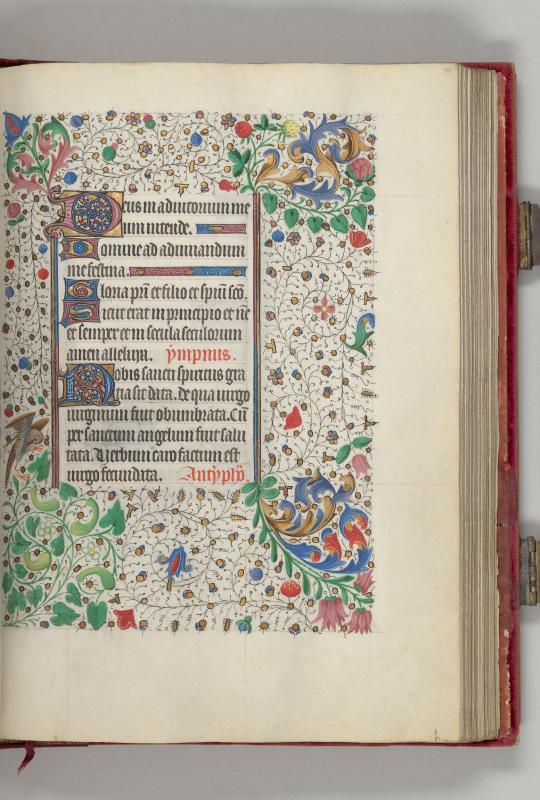 Deus in adiutorium me
um intende.
Domine ad adiuuandum
me festina.
Gloria pr̄i et filio et spūi sc̄o.
Sicut erat in principio et nc̄
et semper et in secula seculorum
amen alleluya. ympnus.
Nobis sancti spiritus gra
cia sit data. De qua uirgo
uirginum fuit obumbrata. Cū
per sanctum angelum fuit salu
tata. Verbum caro factum est
uirgo fecundata. Antyphō.